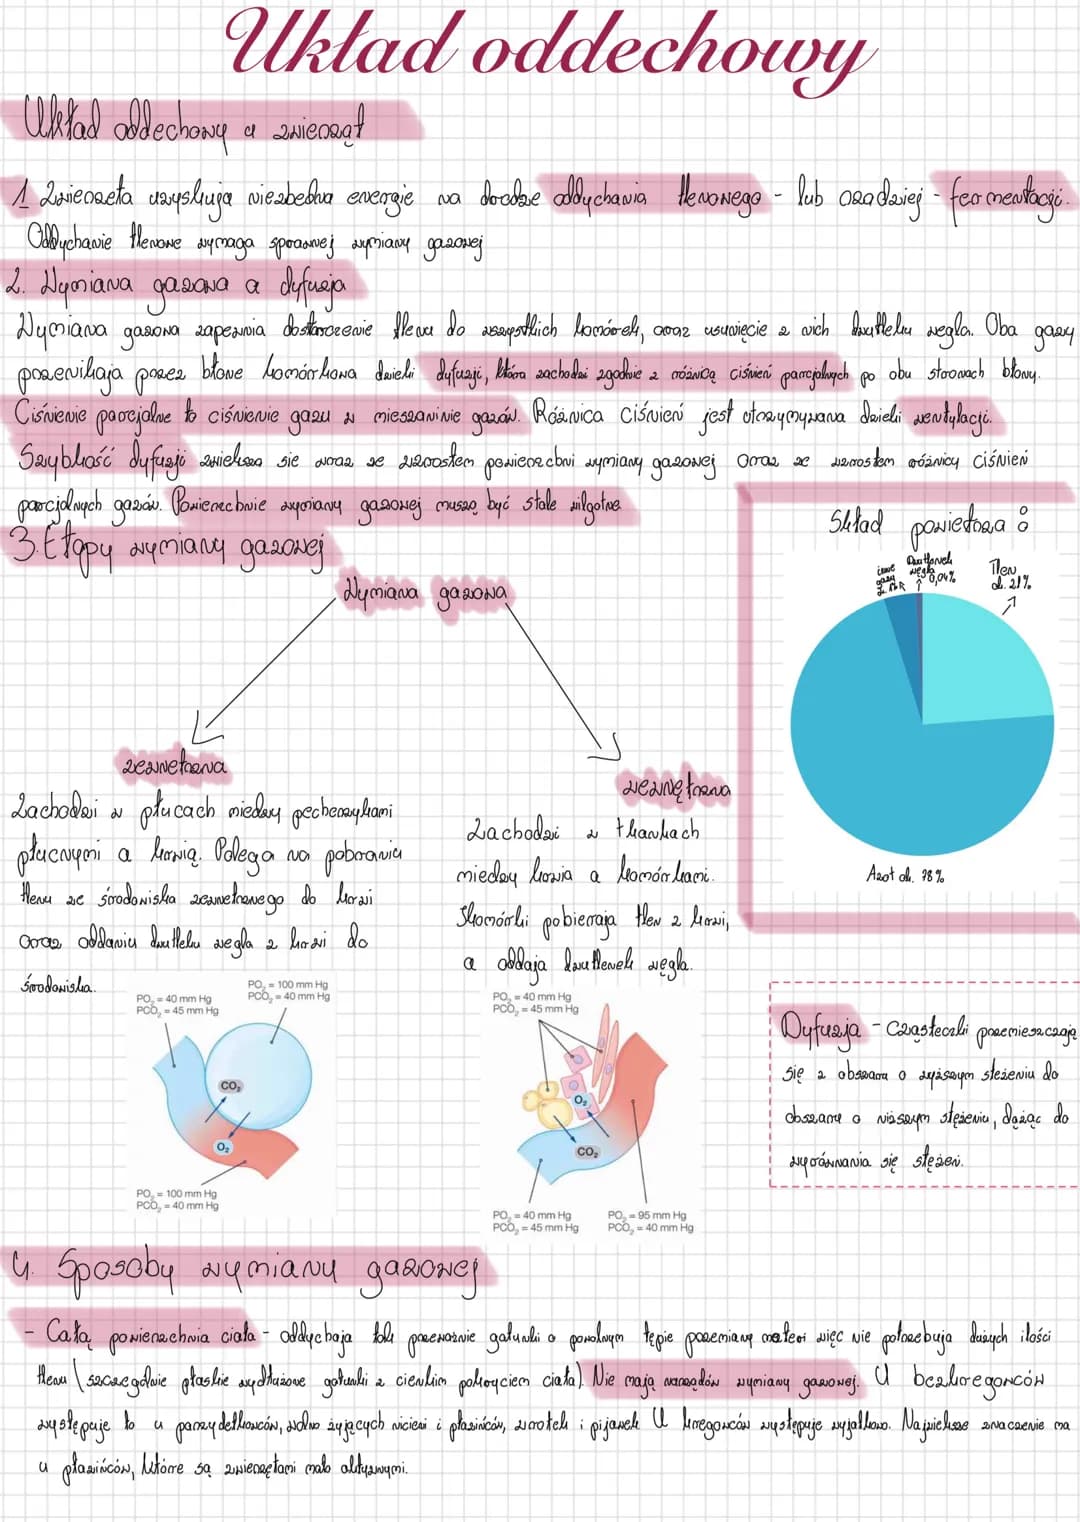 Układ oddechowy
Układ oddechowy u zwierząt
1. Zwierzęta uzyskują niezbędną energię na drodze oddychania tlenowego - lub rzadziej - fermentacji.
Oddychanie tlenowe wymaga sprawnej wymiany gazowej
2. Wymiana gazowa a dyfuzja
Wymiana gazowa zapewnia dostarczenie tlenu do wszystkich komórek, oraz usunięcie z nich dwutlenku węgla. Oba gazy
przenikają przez błonę komórkową dzięki dyfuzji, która zachodzi zgodnie z różnicą ciśnień parcjalnych po obu stronach błony.
Ciśnienie parcjalne to ciśnienie gazu w mieszaninie gazów. Różnica ciśnień jest otrzymywana dzięki wentylacji.
Szybkość dyfuzji zwiększa się wraz ze wzrostem powierzchni wymiany gazowej oraz ze wzrostem różnicy ciśnień
parcjalnych gazów. Powierzchnie wymiany gazowej muszą być stale wilgotne.
3. Etapy wymiany gazowej
Skład powietrza:
inne gazy
Dwutlenek węgla 0,04%
Tlen ok. 21%
Azot ok. 78%
Wymiana gazowa
zewnętrzna
Zachodzi w płucach między pęcherzykami
płucnymi a krwią. Polega na pobraniu
tlenu ze środowiska zewnętrznego do krwi
oraz oddaniu dwutlenku węgla z krwi do
środowiska.
wewnętrzna
Zachodzi w tkankach
między krwią a komórkami.
Komórki pobierają tlen z krwi,
a oddają dwutlenek węgla.
PO₂ = 40 mm Hg
PCO₂ = 45 mm Hg
PO₂ = 100 mm Hg
PCO₂ = 40 mm Hg
CO₂
O₂
PO₂ = 100 mm Hg
PCO₂ = 40 mm Hg
PO₂ = 40 mm Hg
PCO₂ = 45 mm Hg
O₂
CO₂
PO₂ = 40 mm Hg
PCO₂ = 45 mm Hg
PO₂ = 95 mm Hg
PCO₂ = 40 mm Hg
Dyfuzja - cząsteczki przemieszczają
się z obszaru o wyższym stężeniu do
obszaru o niższym stężeniu, dążąc do
wyrównania się stężeń.
4. Sposoby wymiany gazowej
- Całą powierzchnia ciała - oddychają tak przeważnie gatunki o powolnym tępie przemiany materi więc nie potrzebują dużych ilości
tlenu (szczególnie płaskie wydłużone gatunki z cienkim pokryciem ciała). Nie mają narządów wymiany gazowej. U bezkręgowców
występuje to u parzydełkowców, wolno żyjących nicieni i płazińców, wrotek i pijawek U kręgowców występuje wyjątkowo. Największe znaczenie ma
u płazińców, które są zwierzętami mało aktywnymi.